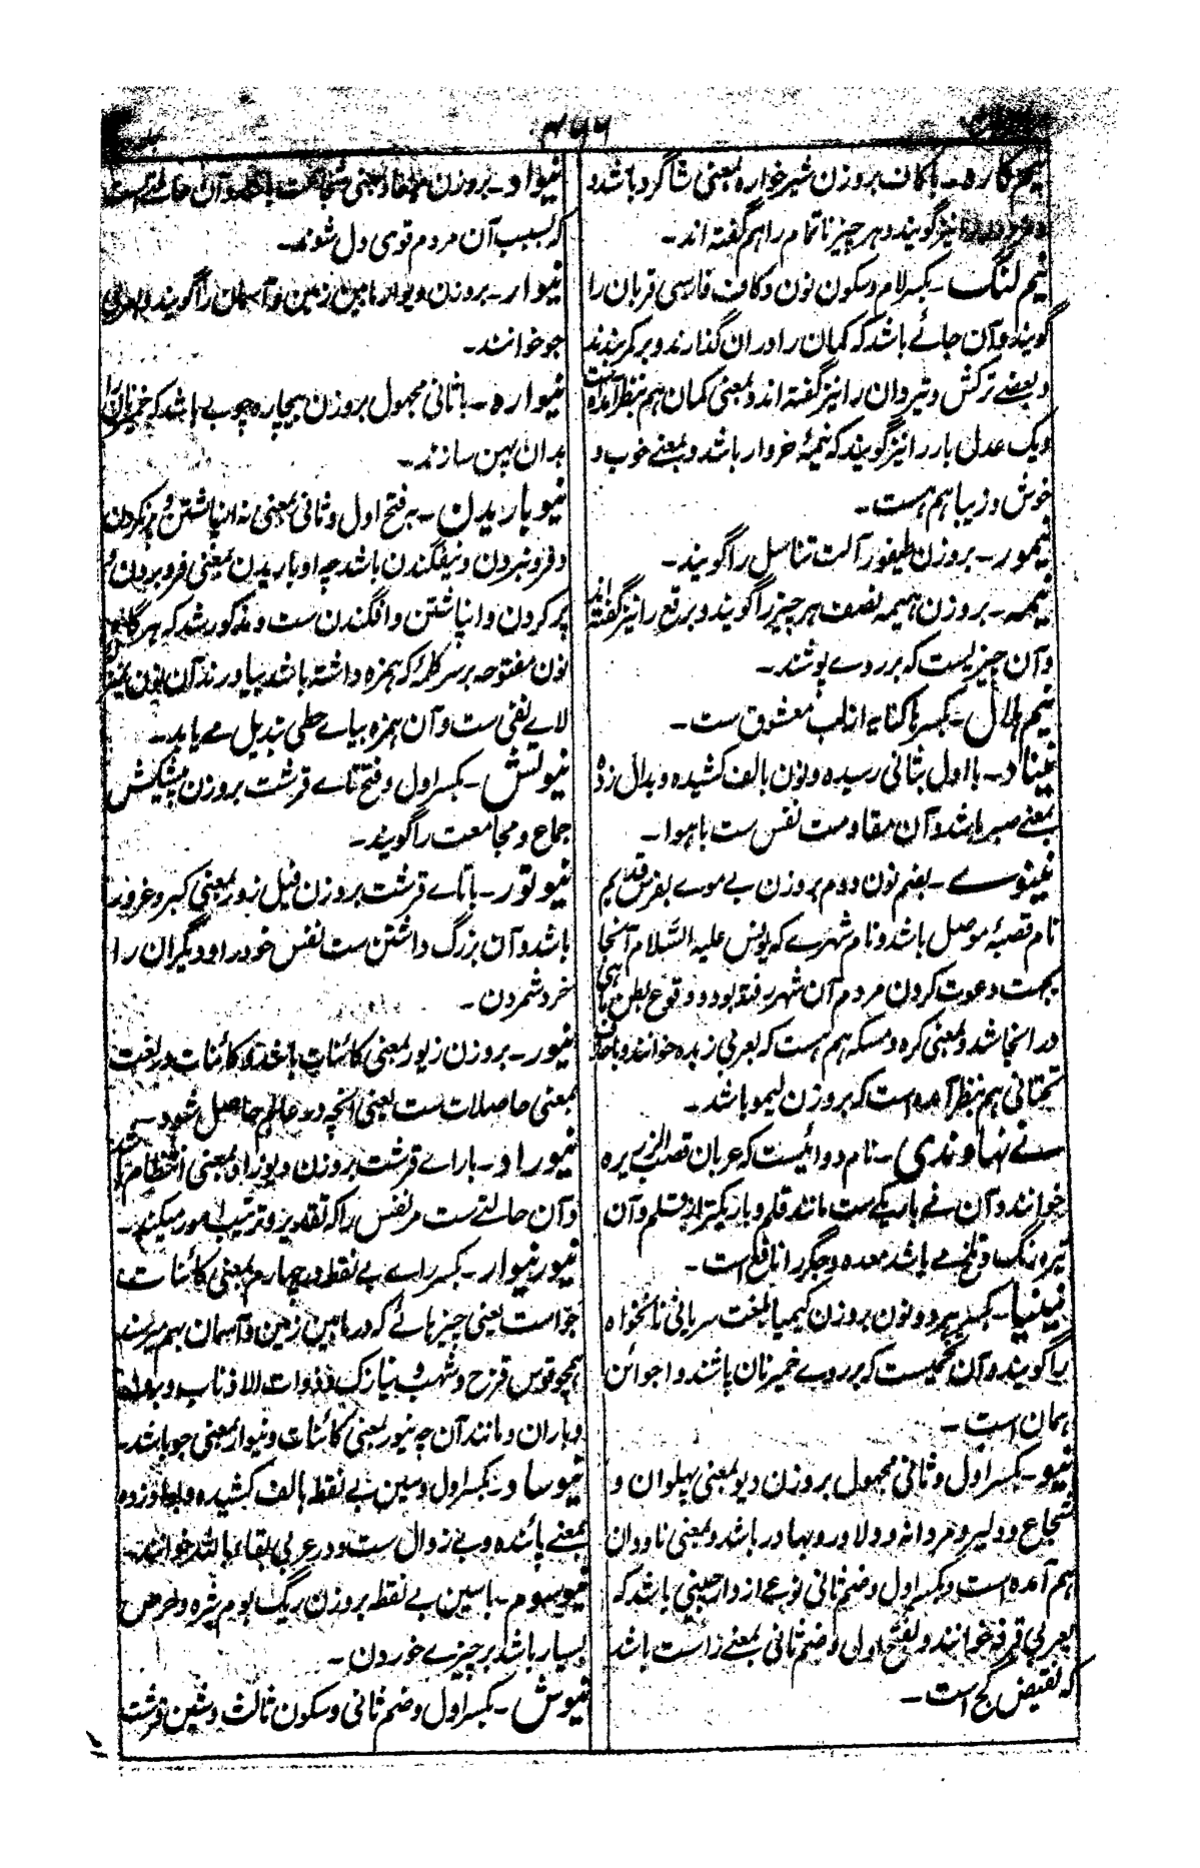 نیم کاره - با کاف بروزن شیرخواره بمعنی شاگرد باشد و
نیز گویند و هر چیز ناتمام را هم گفته اند -
نیم لنگ - بکسر لام و سکون نون و کاف فارسی قربان را
گویند و آن جائے باشد که کمان را دران گذارند و بر کمر بندند
و بعضے ترکش و تیردان را نیز گفته اند و بمعنی کمان هم بنظر آمده است
و یک عدل بار را نیز گویند که نیمهٔ خروار باشد و بمعنے خوب و
خوش و زیبا هم هست -
نیمور - بروزن طیفور آلت تناسل را گویند -
نیمه - بروزن هیمه نصف هر چیز را گویند و برقع را نیز گفته اند
و آن چیزیست که بر روے پوشند -
نیم هلال - بکسر ها کنایه از لب معشوق ست -
نیناد - با اول بثانی رسیده و نون بالف کشیده و بدال زده
بمعنے صبر باشد و آن مقاومت نفس ست با هوا -
نینوے - بضم نون دوم بروزن بے موے بفرس قدیم
نام قصبهٔ موصل باشد و نام شهرے که یونس علیه السلام آنجا
بجهت دعوت کردن مردم آن شهر رفته بود و وقوع بطن ماهی
در انجا شد و بمعنی کره و مسکه هم هست که بعربی زبده خوانند و
تحتانی هم بنظر آمده است که بروزن لیمو باشد -
نے نهاوندی - نام دوائیست که عربان قصب الزریره
خوانند و آن نے باریکے ست مانند قلم و باریکتر از قلم و آن
تیره رنگ و تلخ مے باشد معده و جگر را نافع است -
نینیا - بکسر هر دو نون بروزن کیمیا بلغت سریانی نانخواه
را گویند و آن تخمیست که بر روے خمیر نان پاشند و اجوائن
همان است -
نیو - بکسر اول و ثانی مجهول بروزن دیو بمعنی پهلوان و
شجاع و دلیر و مردانه و دلاور و بهادر باشد و بمعنی ناودان
هم آمده است و بکسر اول و ضم ثانی نوعے از دارچینی باشد که
بعربی قرفه خوانند و بفتح اول و ضم ثانی بمعنے راست باشد
که نقیض کج است -
نیواد - بروزن بمعنی شجاعت باشد و آن حالتے ست
که بسبب آن مردم قوی دل شوند -
نیوار - بروزن دیوار مابین زمین و آسمان را گویند و بعربی
جو خوانند -
نیواره - با ثانی مجهول بروزن بیچاره چوبے باشد که خمیر نان را
بدان پهن سازند -
نیوباریدن - بفتح اول و ثانی بمعنی نه انپاشتن و پر نکردن
و فرو نبردن و نیفگندن باشد چه اوباریدن بمعنی فرو بردن و
پر کردن و انپاشتن و افگندن ست و مذکور شد که هرگاه
نون مفتوحه بر سر کلمهٔ که همزه داشته باشد بیاورند آن نون بمعنی
لاے نفی ست و آن همزه بیاے حطی تبدیل مے یابد -
نیوتش - بکسر اول و فتح تاے قرشت بروزن پیشکش
جماع و مجامعت را گویند -
نیوتور - با تاے قرشت بروزن فیل زور بمعنی کبر و غرور
باشد و آن بزرگ داشتن ست نفس خود را و دیگران را
خرد شمردن -
نیور - بروزن زیور بمعنی کائنات باشد و کائنات در لغت
بمعنی حاصلات ست یعنی انچه در عالم حاصل شود -
نیوراد - با راے قرشت بروزن دیوزاد بمعنی انتظام باشد
و آن حالتے ست مر نفس را که تقدیر و ترتیب امور میکند -
نیور نیوار - بکسر راے بے نقطه در چهارم بمعنی کائنات
جو است یعنی چیزهائے که در مابین زمین و آسمان بهم میرسند
همچو قوس قزح و شهب و نیازک و ذوات الاذناب و
و باران و مانند آن چه نیور بمعنی کائنات و نیوار بمعنی جو باشد -
نیوساد - بکسر اول و سین بے نقطه بالف کشیده و بدال زده
بمعنے پائنده و بے زوال ست و در عربی بقاء بالله خوانند -
نیوسوم - با سین بے نقطه بروزن ریگ بوم شره و حرص
بسیار باشد بر چیزے خوردن -
نیوش - بکسر اول و ضم ثانی و سکون ثالث و شین قرشت